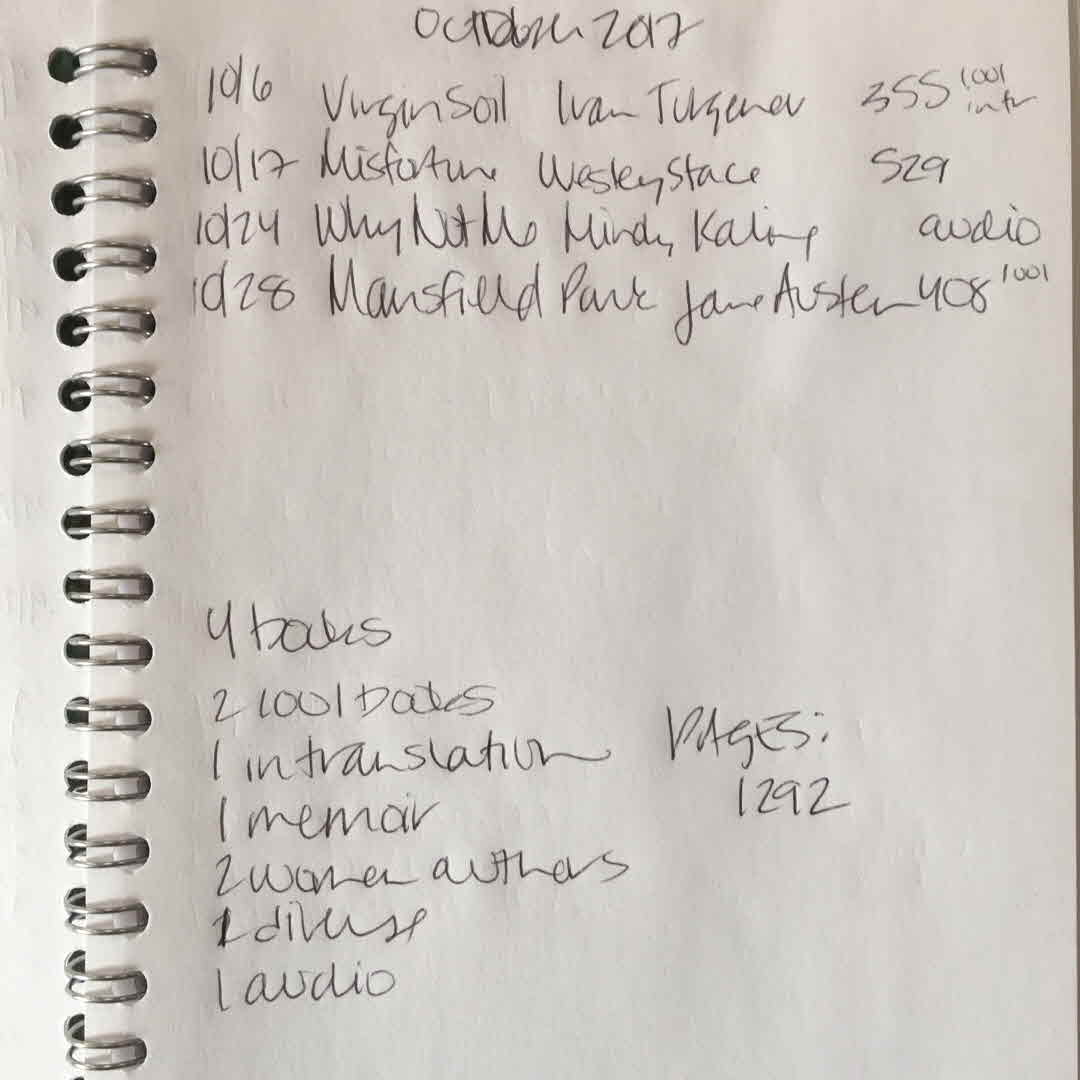 October 2017
10/6 Virgin Soil Ivan Turgenev 355 1001 intr
10/17 Misfortune Wesley Stace 529
10/24 Why Not Me Mindy Kaling audio
10/28 Mansfield Park Jane Austen 408 1001
4 books
2 1001 books
1 in translation
1 memoir
2 women authors
1 diverse
1 audio
PAGES:
1292